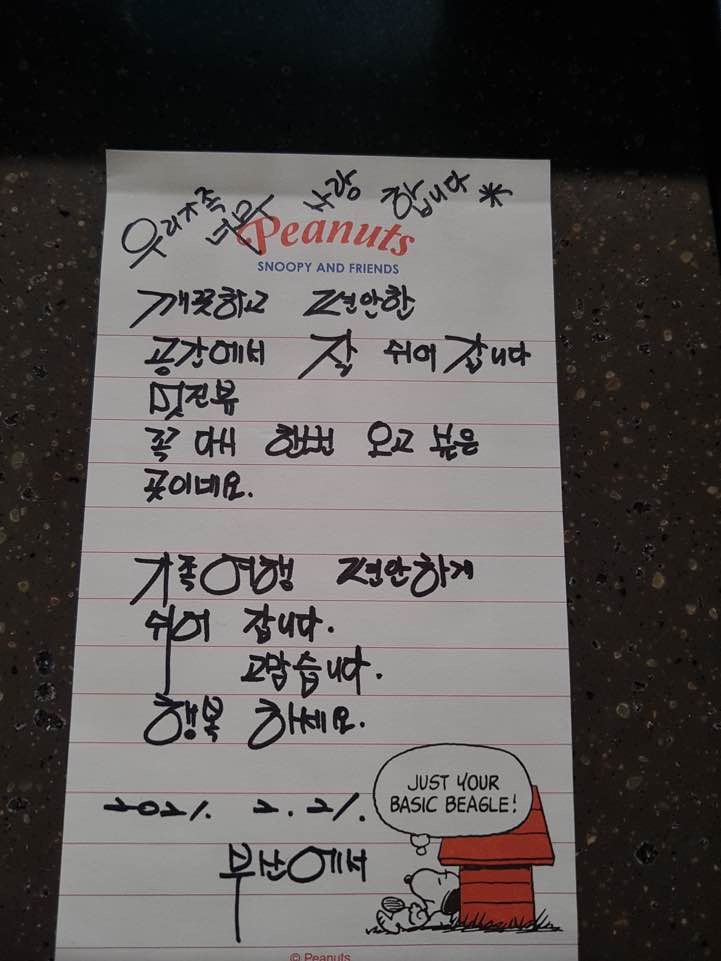 우리가족 갑니다 *
Peanuts
SNOOPY AND FRIENDS
깨끗하고 편안한
공간에서 잘 쉬어 갑니다
멋진뷰
꼭 다시 한번 오고 싶은
곳이네요.
가족여행 편안하게
쉬어 갑니다.
고맙습니다.
행복 하세요.
2021. 2. 21.
부산에서
JUST YOUR
BASIC BEAGLE!
© Peanuts